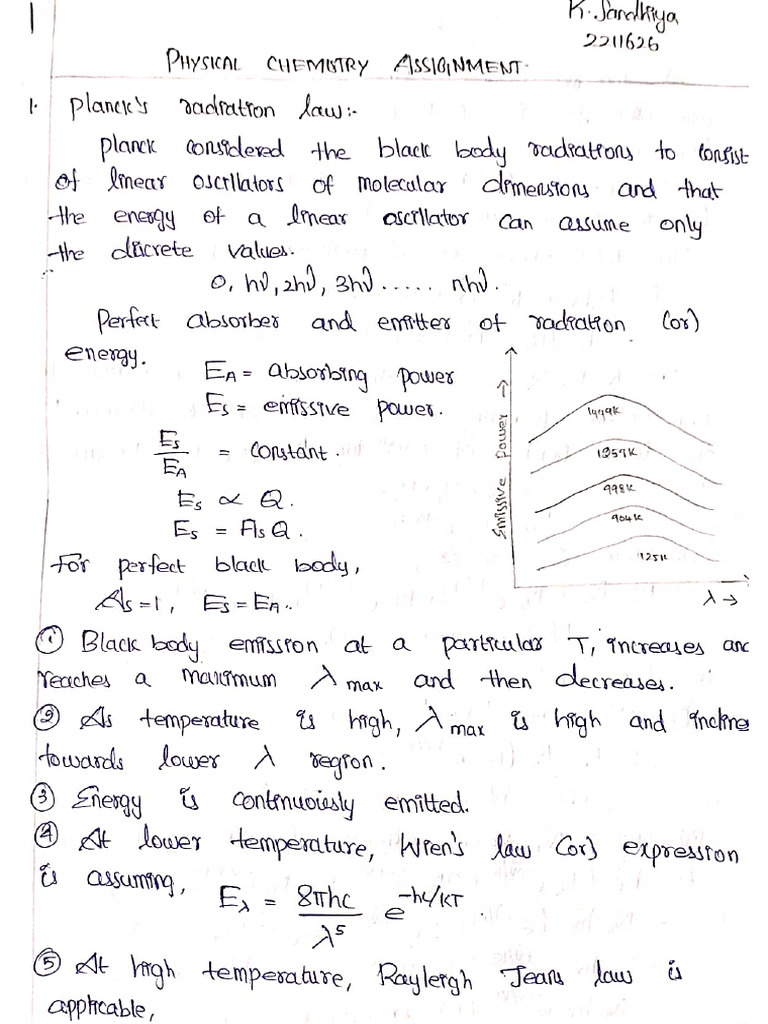 1
K. Sandhiya
2211626
PHYSICAL CHEMISTRY ASSIGNMENT.
1. Planck's radiation law:-
Planck considered the black body radiations to consist
of linear oscillators of molecular dimensions and that
the energy of a linear oscillator can assume only
the discrete values.
0, hν, 2hν, 3hν ...... nhν.
Perfect absorber and emitter of radiation (or)
energy.
E_A = absorbing power
E_s = emissive power.
E_s/E_A = constant.
E_s ∝ Q.
E_s = A_s Q.
For perfect black body,
A_s = 1, E_s = E_A.
Emissive power →
1449K
1259K
998K
904K
725K
λ →
① Black body emission at a particular T, increases and
reaches a maximum λ max and then decreases.
② As temperature is high, λ max is high and incline
towards lower λ region.
③ Energy is continuoisly emitted.
④ At lower temperature, Wien's law (or) expression
is assuming,
E_λ = 8πhc/λ^5 e^-hc/KT.
⑤ At high temperature, Rayleigh Jeans law is
applicable,